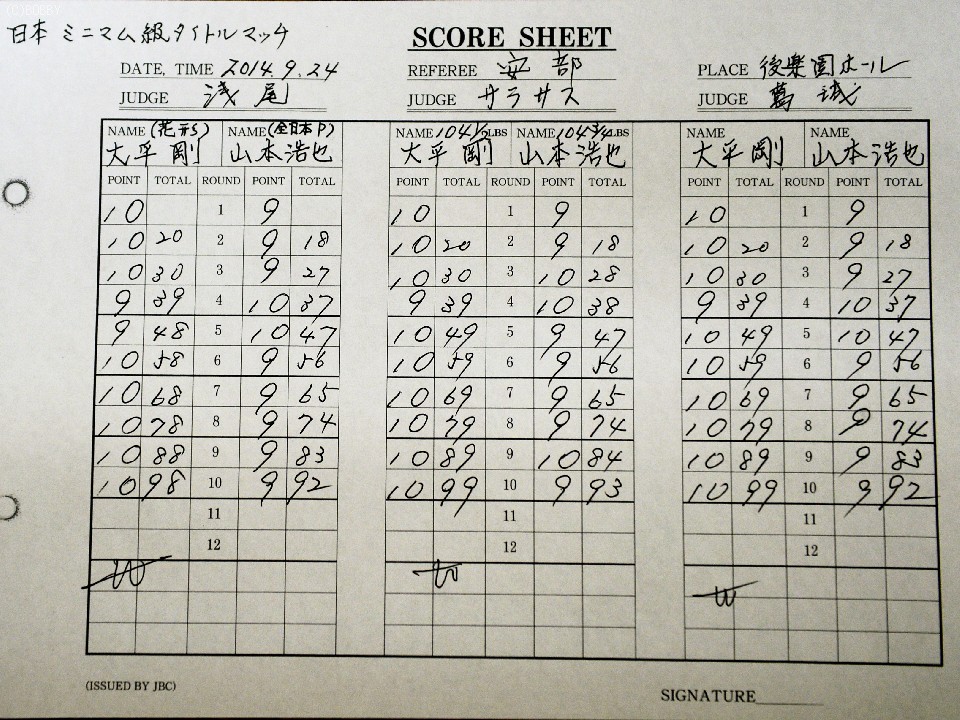 日本 ミニマム級タイトルマッチ
SCORE SHEET
DATE, TIME 2014.9.24 REFEREE 安部 PLACE 後樂園ホール
JUDGE 浅尾 JUDGE サラサス JUDGE 葛城
NAME (花形S) NAME (全日本P) NAME 104 1/2 LBS NAME 104 3/4 LBS NAME NAME
大平剛 山本浩也 大平剛 山本浩也 大平剛 山本浩也
POINT TOTAL ROUND POINT TOTAL POINT TOTAL ROUND POINT TOTAL POINT TOTAL ROUND POINT TOTAL
10 1 9 10 1 9 10 1 9
10 20 2 9 18 10 20 2 9 18 10 20 2 9 18
10 30 3 9 27 10 30 3 10 28 10 30 3 9 27
9 39 4 10 37 9 39 4 10 38 9 39 4 10 37
9 48 5 10 47 10 49 5 9 47 10 49 5 10 47
10 58 6 9 56 10 59 6 9 56 10 59 6 9 56
10 68 7 9 65 10 69 7 9 65 10 69 7 9 65
10 78 8 9 74 10 79 8 9 74 10 79 8 9 74
10 88 9 9 83 10 89 9 10 84 10 89 9 9 83
10 98 10 9 92 10 99 10 9 93 10 99 10 9 92
11 11 11
12 12 12
W W W
(ISSUED BY JBC) SIGNATURE